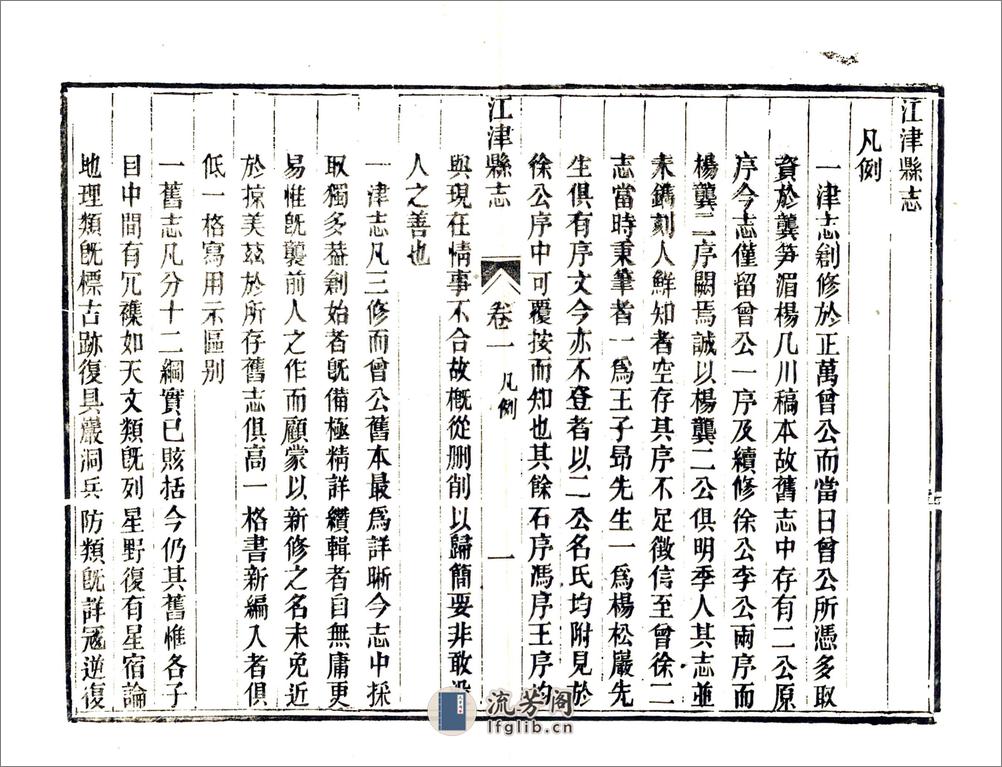 江津縣志
凡例
一津志創修於正萬曾公而當日曾公所憑多取
資於龔笋湄楊几川稿本故舊志中存有二公原
序今志僅留曾公一序及續修徐公李公兩序而
楊龔二序闕焉誠以楊龔二公俱明季人其志並
未鐫刻人鮮知者空存其序不足徵信至曾徐二
志當時秉筆者一爲王子昂先生一爲楊松巖先
生俱有序文今亦不登者以二公名氏均附見於
徐公序中可覆按而知也其餘石序馮序王序均
江津縣志 卷一 凡例 一
與現在情事不合故槪從删削以歸簡要非敢沒
人之善也
一津志凡三修而曾公舊本最爲詳晰今志中採
取獨多葢創始者旣備極精詳纘輯者自無庸更
易惟旣襲前人之作而顧蒙以新修之名未免近
於掠美茲於所存舊志俱高一格書新編入者俱
低一格寫用示區别
一舊志凡分十二綱實已賅括今仍其舊惟各子
目中間有冗襍如天文類旣列星野復有星宿論
地理類旣標古跡復具巖洞兵防類旣詳冦逆復
流芳阁
lfglib.cn